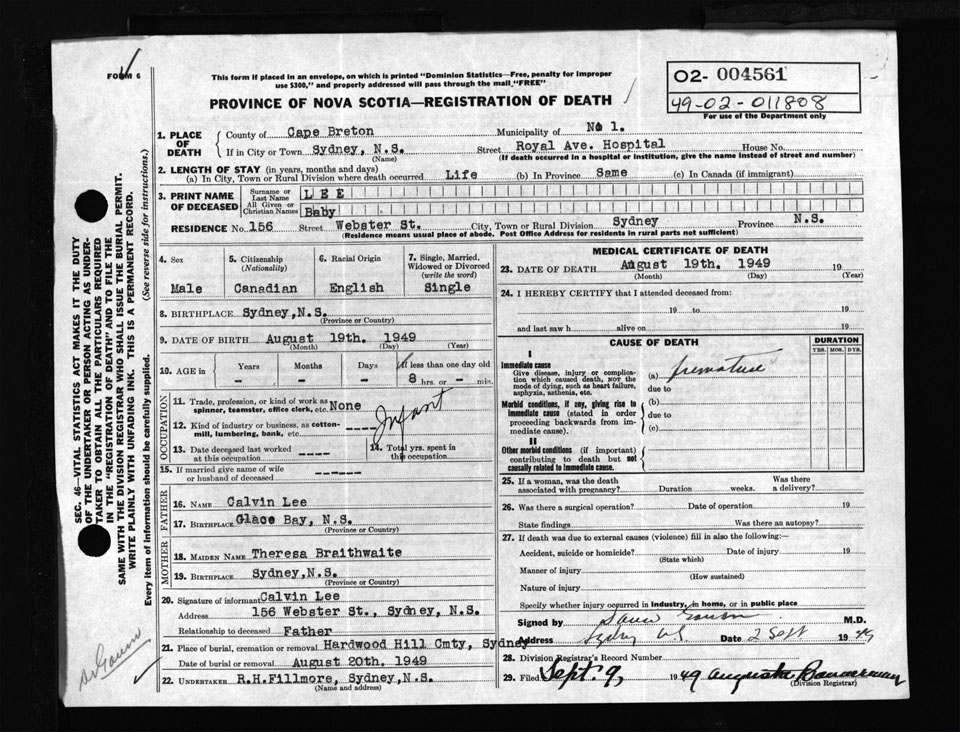 FORM 6
This form if placed in an envelope, on which is printed "Dominion Statistics—Free, penalty for improper
use $300," and properly addressed will pass through the mail "FREE"
PROVINCE OF NOVA SCOTIA—REGISTRATION OF DEATH
02- 004561
49-02-011808
For use of the Department only
1. PLACE OF DEATH
County of Cape Breton Municipality of No 1.
If in City or Town Sydney, N.S. Street Royal Ave. Hospital House No.
(Name) (If death occurred in a hospital or institution, give the name instead of street and number)
2. LENGTH OF STAY (in years, months and days)
(a) In City, Town or Rural Division where death occurred Life (b) In Province Same (c) In Canada (if immigrant)
3. PRINT NAME OF DECEASED
Surname or Last Name LEE
All Given or Christian Names Baby
RESIDENCE No. 156 Street Webster St. City, Town or Rural Division Sydney Province N.S.
(Residence means usual place of abode. Post Office Address for residents in rural parts not sufficient)
4. Sex Male
5. Citizenship (Nationality) Canadian
6. Racial Origin English
7. Single, Married, Widowed or Divorced (write the word) Single
8. BIRTHPLACE Sydney, N.S.
(Province or Country)
9. DATE OF BIRTH August 19th. 1949
(Month) (Day) (Year)
10. AGE in Years - Months - Days - If less than one day old 8 hrs. or - min.
OCCUPATION
11. Trade, profession, or kind of work as
spinner, teamster, office clerk, etc. None
12. Kind of industry or business, as cotton-
mill, lumbering, bank, etc. ----
Infant
13. Date deceased last worked
at this occupation ----
14. Total yrs. spent in
this occupation
15. If married give name of wife
or husband of deceased ------
FATHER
16. NAME Calvin Lee
17. BIRTHPLACE Glace Bay, N.S.
(Province or Country)
MOTHER
18. MAIDEN NAME Theresa Braithwaite
19. BIRTHPLACE Sydney, N.S.
(Province or Country)
20. Signature of informant Calvin Lee
Address 156 Webster St., Sydney, N.S.
Relationship to deceased Father
21. Place of burial, cremation or removal Hardwood Hill Cmty, Sydney
Date of burial or removal August 20th. 1949
22. UNDERTAKER R.H.Fillmore, Sydney, N.S.
(Name and address)
MEDICAL CERTIFICATE OF DEATH
23. DATE OF DEATH August 19th. 1949 19
(Month) (Day) (Year)
24. I HEREBY CERTIFY that I attended deceased from:
19 to 19
and last saw h alive on 19
CAUSE OF DEATH
DURATION
YRS. MOS. DYS.
I
Immediate cause
Give disease, injury or complica-
tion which caused death, NOT the
mode of dying, such as heart failure,
asphyxia, asthenia, etc.
(a) premature
due to
Morbid conditions, if any, giving rise to
immediate cause (stated in order
proceeding backwards from im-
mediate cause).
(b)
due to
(c)
II
Other morbid conditions (if important)
contributing to death but not
causally related to immediate cause.
25. If a woman, was the death
associated with pregnancy? Duration weeks. Was there
a delivery?
26. Was there a surgical operation? Date of operation 19
State findings Was there an autopsy?
27. If death was due to external causes (violence) fill in also the following:—
Accident, suicide or homicide? Date of injury 19
(State which)
Manner of injury
(How sustained)
Nature of injury
Specify whether injury occurred in industry, in home, or in public place
Signed by M.D.
Address Sydney N.S. Date 2 Sept 1949
28. Division Registrar's Record Number
29. Filed Sept. 9, 1949 Augusta Bannerman
(Division Registrar)
SEC. 46—VITAL STATISTICS ACT MAKES IT THE DUTY
OF THE UNDERTAKER OR PERSON ACTING AS UNDER-
TAKER TO OBTAIN ALL THE PARTICULARS REQUIRED
IN THE "REGISTRATION OF DEATH" AND TO FILE THE
SAME WITH THE DIVISION REGISTRAR WHO SHALL ISSUE THE BURIAL PERMIT.
WRITE PLAINLY WITH UNFADING INK. THIS IS A PERMANENT RECORD.
Every item of information should be carefully supplied. (See reverse side for instructions.)
Dr